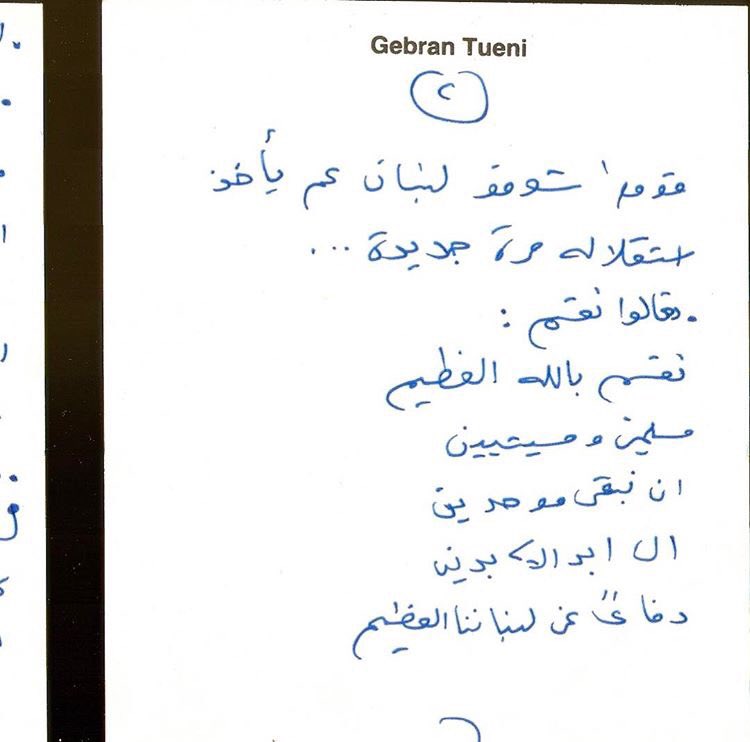 Gebran Tueni
٢
قوموا شوفو لبنان عم يأخذ
استقلاله مرة جديدة ...
. تعالوا نقسم :
نقسم بالله العظيم
مسلمين و مسيحيين
ان نبقى موحدين
الى ابد الآبدين
دفاعاً عن لبناننا العظيم